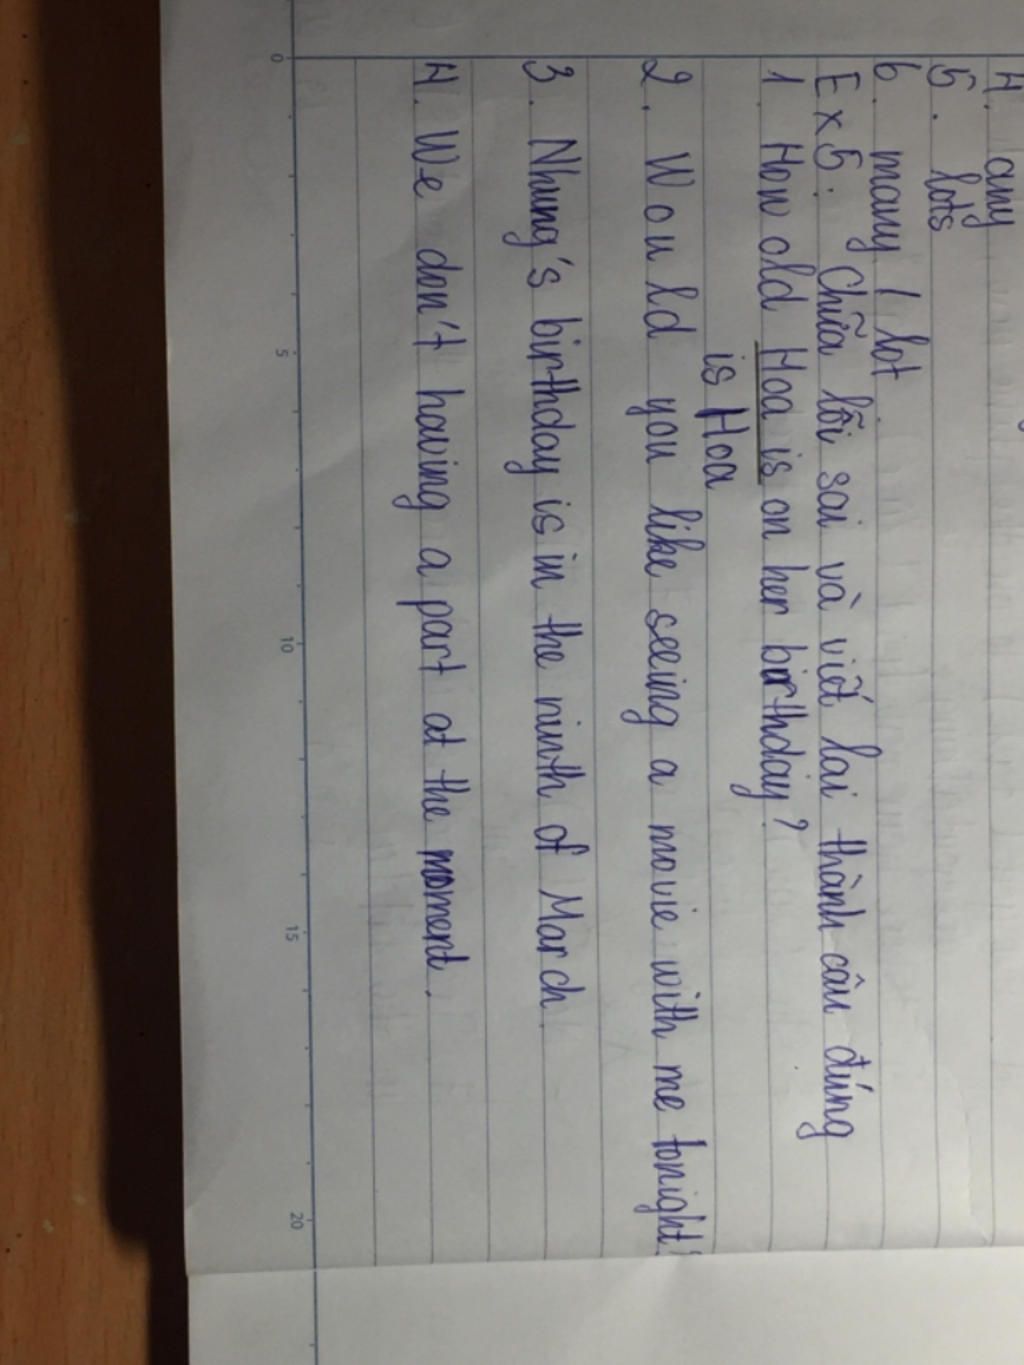 4. any
5. lots
6. many / lot
Ex5: Chữa lỗi sai và viết lại thành câu đúng
1. How old Hoa is on her birthday?
is Hoa
2. Would you like seeing a movie with me tonight?
3. Nhung's birthday is in the ninth of March.
4. We don't having a part at the moment.
0 5 10 15 20